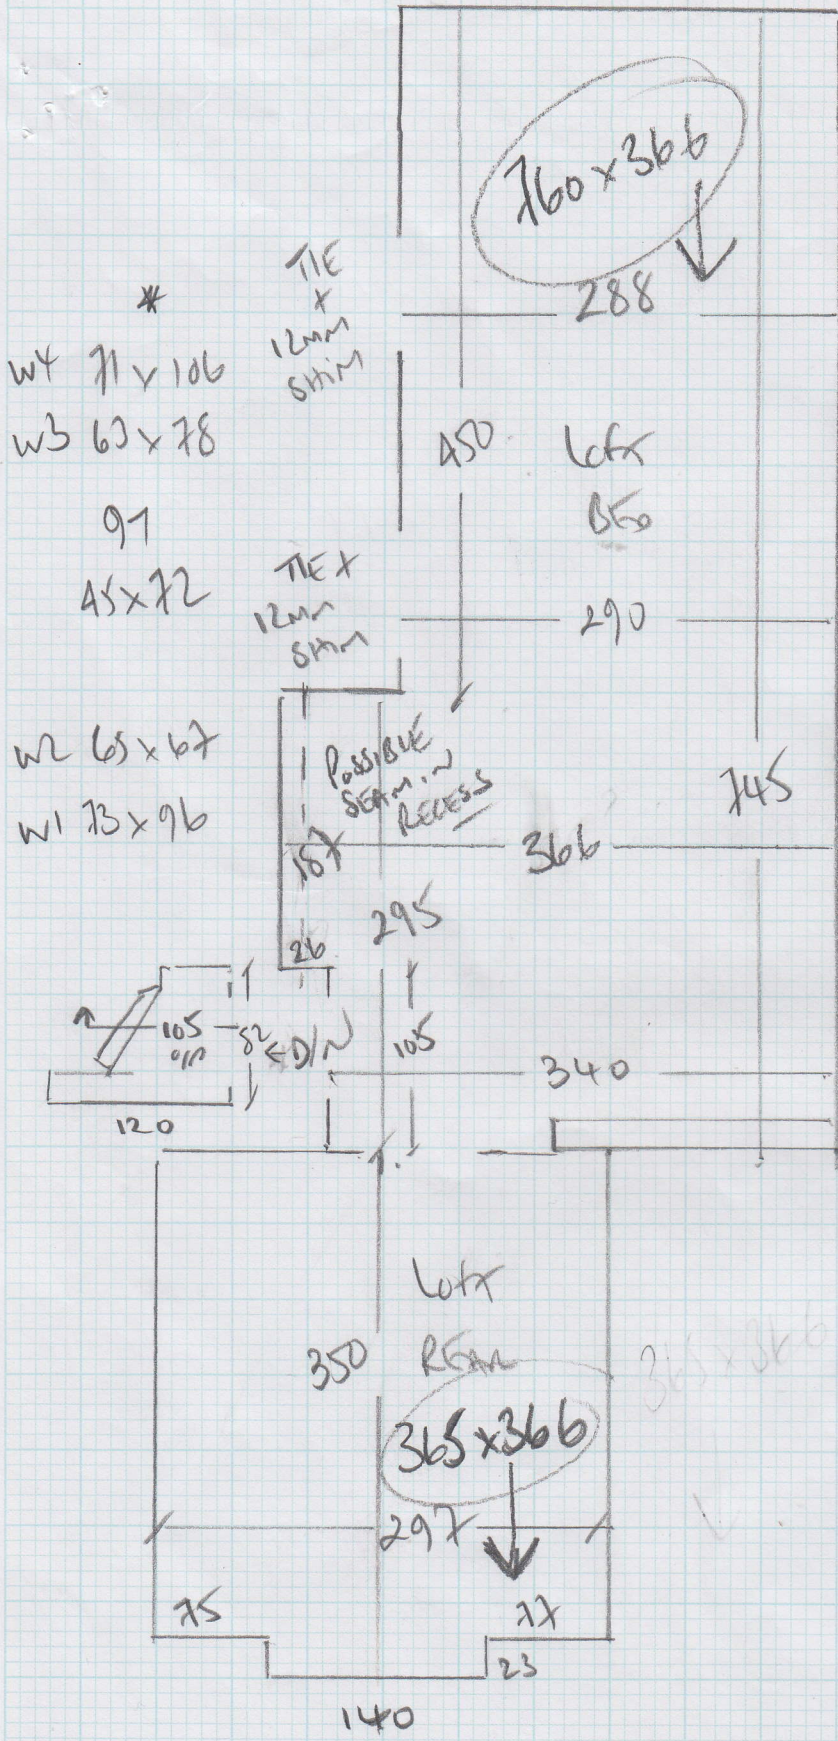 760 x 366
TIE
+
12MM
SHIM
288
*
W4 71 x 106
W3 63 x 78
450
LOFT
BED
91
45 x 72
TIE +
12MM
SHIM
290
W2 65 x 67
W1 73 x 96
POSSIBLE
SEAM IN
RECESS
745
187
366
295
26
105
O/P
82
← D/N
105
340
120
LOFT
REAR
350
365 x 366
365 x 366
297
75
77
23
140